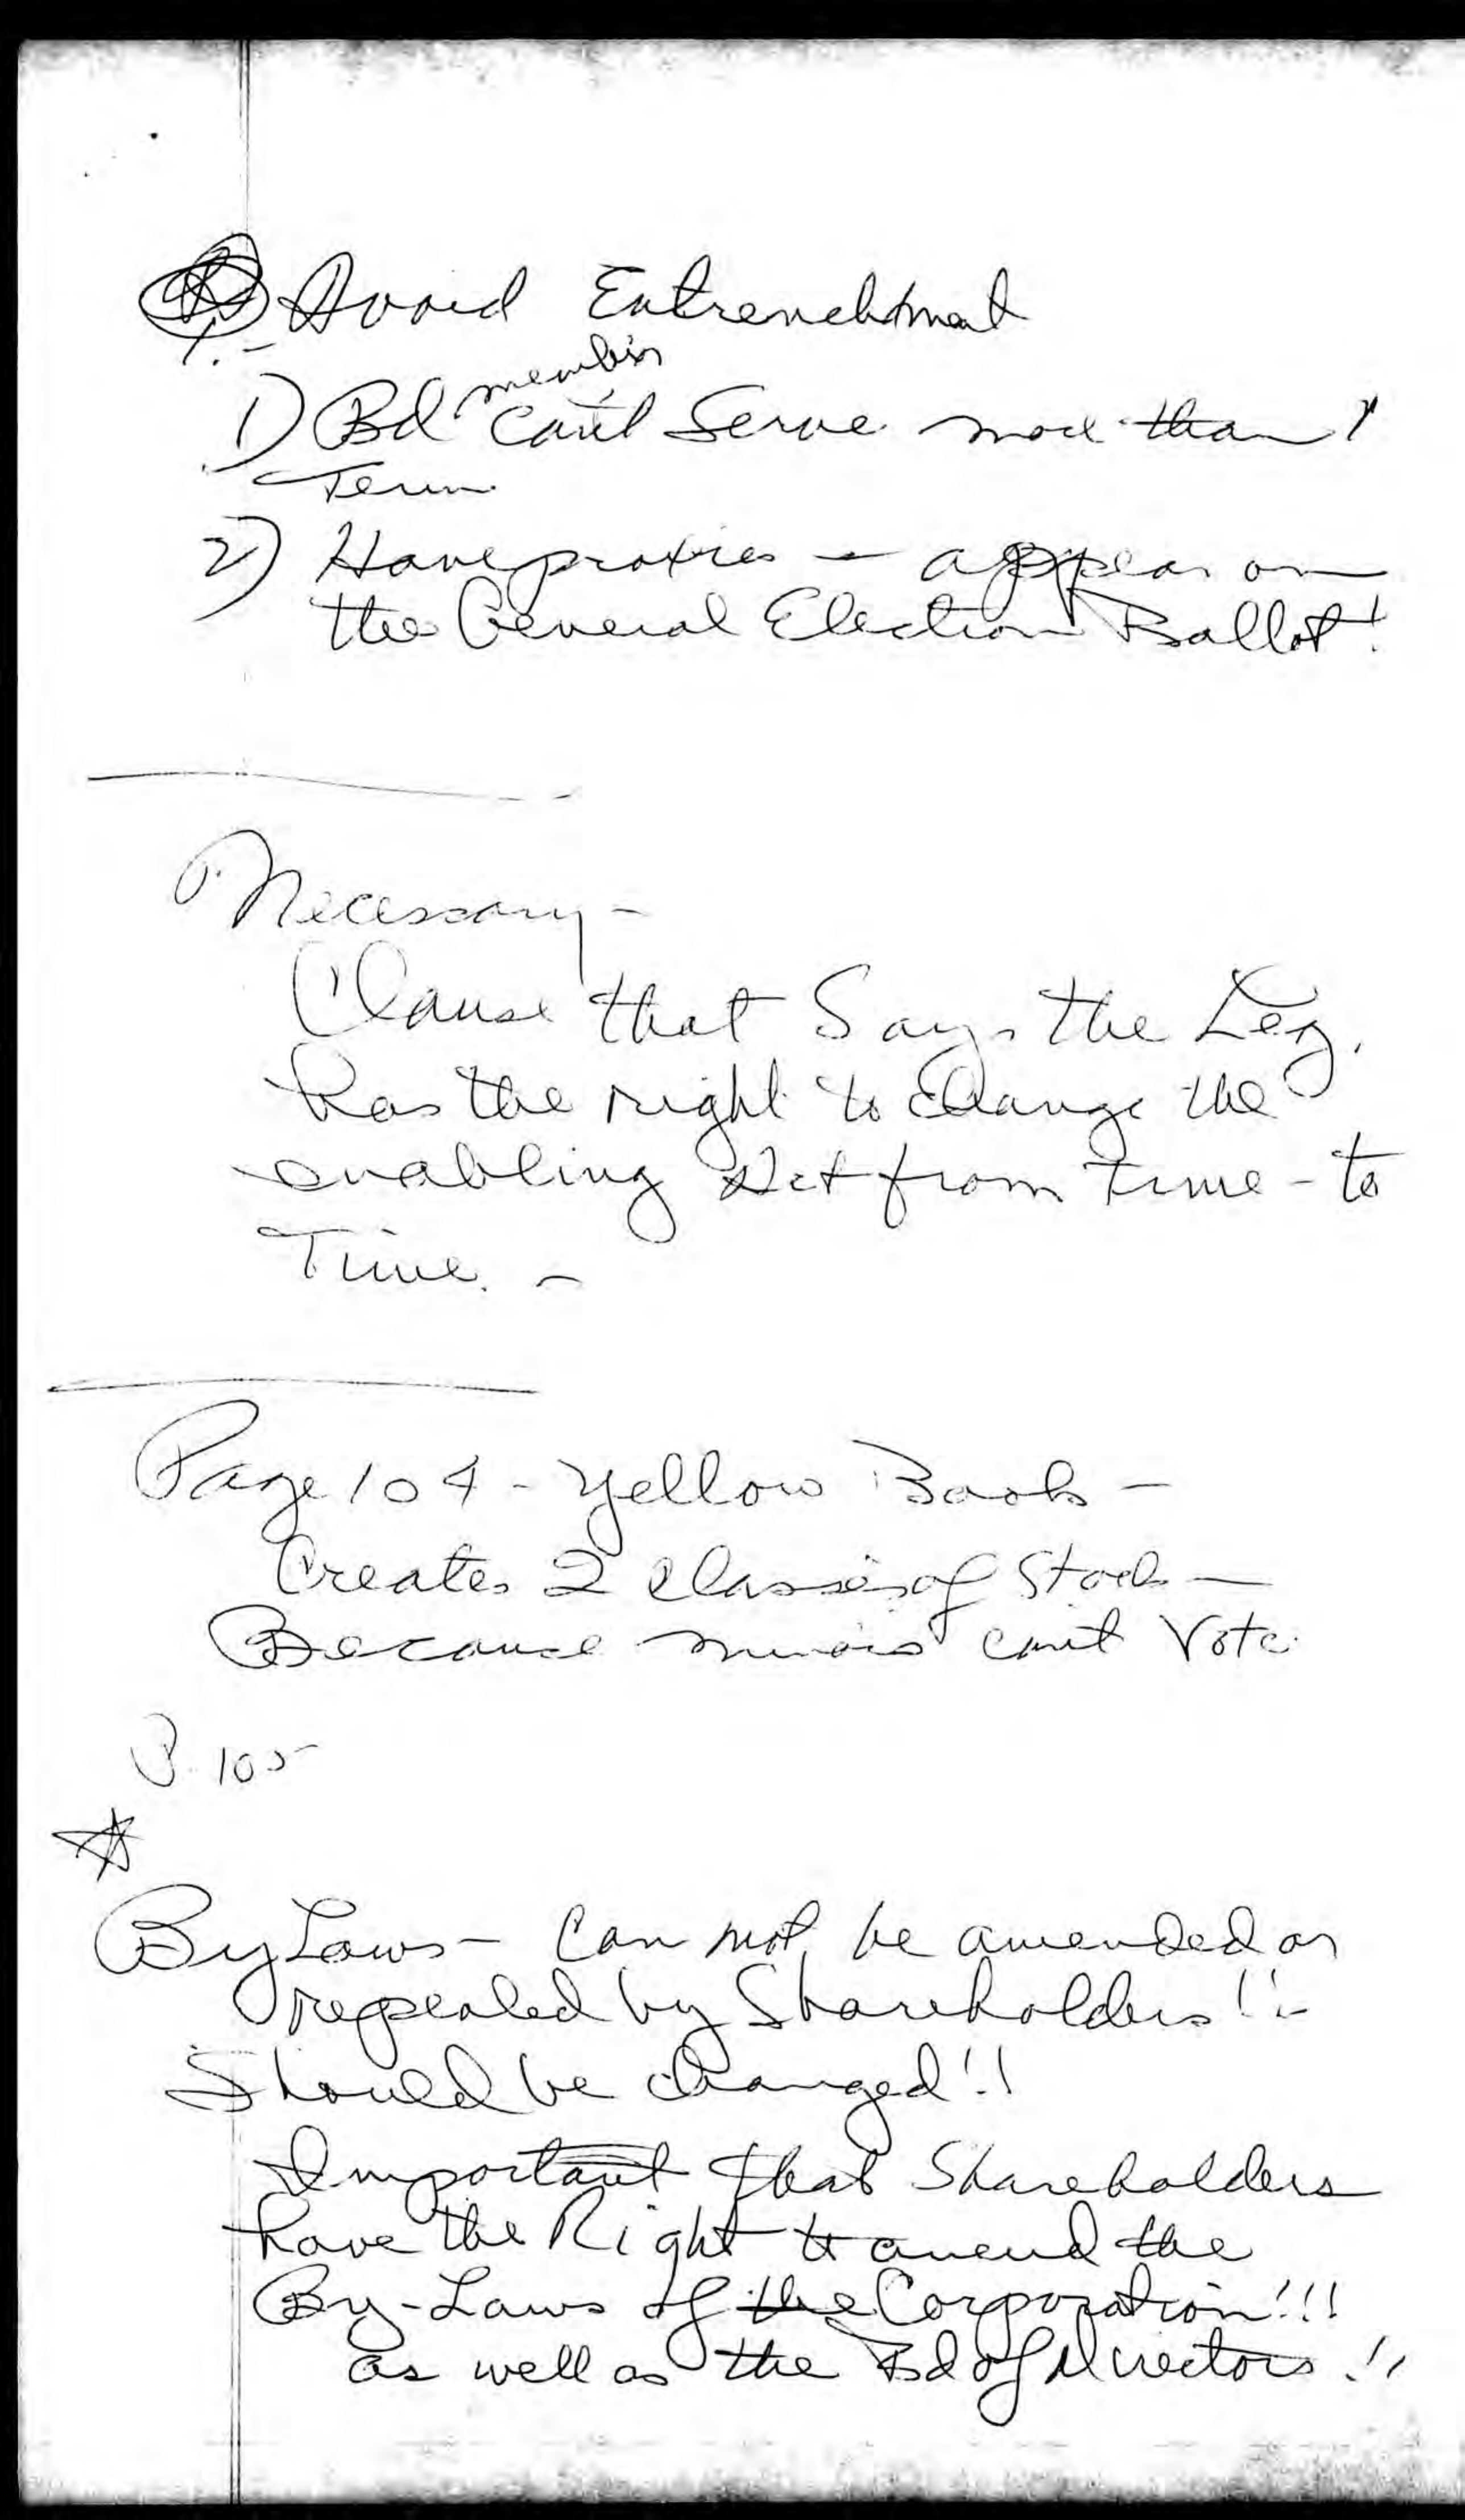 Avoid Entrenchment
1.-
member
1) Bd can't Serve more than 1
Term
2) Have proxies - appear on
the General Election Ballot!
Necessary -
Clause that Says the Leg.
has the right to change the
enabling Act from time - to
Time. -
Page 104 - Yellow Book -
Creates 2 classes of Stock -
Because minors can't Vote.
P. 105
By Laws - Can not be amended or
repealed by Shareholders!!-
Should be changed!!
Important that Shareholders
have the Right to amend the
By-Laws of the Corporation!!!
as well as the Bd of Directors!!